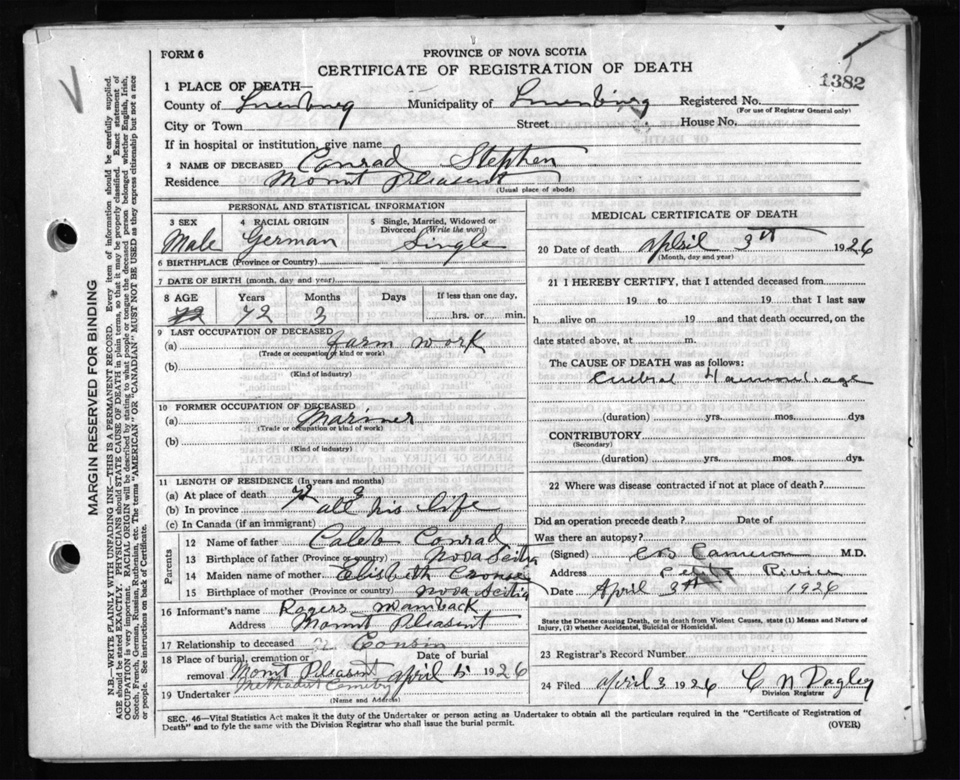 FORM 6
PROVINCE OF NOVA SCOTIA
CERTIFICATE OF REGISTRATION OF DEATH
1382
1 PLACE OF DEATH—
County of Lunenburg Municipality of Lunenburg Registered No.
(For use of Registrar General only)
City or Town Street House No.
If in hospital or institution, give name
2 NAME OF DECEASED Conrad Stephen
Residence Mount Pleasent
(Usual place of abode)
PERSONAL AND STATISTICAL INFORMATION
3 SEX 4 RACIAL ORIGIN 5 Single, Married, Widowed or
Divorced (Write the word)
Male German Single
6 BIRTHPLACE (Province or Country)
7 DATE OF BIRTH (month, day and year)
8 AGE Years Months Days If less than one day,
72 72 3 hrs. or min.
9 LAST OCCUPATION OF DECEASED
(a) farm work
(Trade or occupation or kind or work)
(b)
(Kind of industry)
10 FORMER OCCUPATION OF DECEASED
(a) Mariner
(Trade or occupation or kind of work)
(b)
(Kind of industry)
11 LENGTH OF RESIDENCE (In years and months)
(a) At place of death 72 3
(b) In province all his life
(c) In Canada (if an immigrant)
Parents
12 Name of father Caleb Conrad
13 Birthplace of father (Province or country) Nova Scotia
14 Maiden name of mother Elisbeth Crouse
15 Birthplace of mother (Province or country) Nova Scotia
16 Informant's name Rogers Wamback
Address Mount Pleasent
17 Relationship to deceased Cousin
18 Place of burial, cremation or Date of burial
removal Mount Pleasent April 5 1926
Methodist
19 Undertaker
(Name and Address)
MEDICAL CERTIFICATE OF DEATH
20 Date of death April 3rd 1926
(Month, day and year)
21 I HEREBY CERTIFY, that I attended deceased from
19 to 19 that I last saw
h alive on 19 and that death occurred, on
date stated above, at m.
The CAUSE OF DEATH was as follows:
Cerebral Haemorrhage
(duration) yrs. mos. dys
CONTRIBUTORY
(Secondary)
(duration) yrs. mos. dys.
22 Where was disease contracted if not at place of death?
Did an operation precede death? Date of
Was there an autopsy?
(Signed) Cameron M.D.
Address Petite Riviere
Date April 3rd 1926
State the Disease causing Death, or in death from Violent Causes, state (1) Means and Nature of
Injury, (2) whether Accidental, Suicidal or Homicidal.
23 Registrar's Record Number
24 Filed April 3 1926 C N Dagley
Division Registrar
SEC. 46—Vital Statistics Act makes it the duty of the Undertaker or person acting as Undertaker to obtain all the particulars required in the "Certificate of Registration of
Death" and to fyle the same with the Division Registrar who shall issue the burial permit.
(OVER)
MARGIN RESERVED FOR BINDING
N.B.—WRITE PLAINLY WITH UNFADING INK—THIS IS A PERMANENT RECORD. Every item of information should be carefully supplied.
AGE should be stated EXACTLY. PHYSICIANS should STATE CAUSE OF DEATH in plain terms, so that it may be properly classified. Exact statement of
OCCUPATION is very important. RACIAL ORIGIN will be described by stating to what people or tongue the deceased person belonged whether English, Irish,
Scotch, French, German, Russian, Ruthenian, etc. The terms "AMERICAN" OR "CANADIAN" MUST NOT BE USED as they express citizenship but not a race
or people. See instructions on back of Certificate.